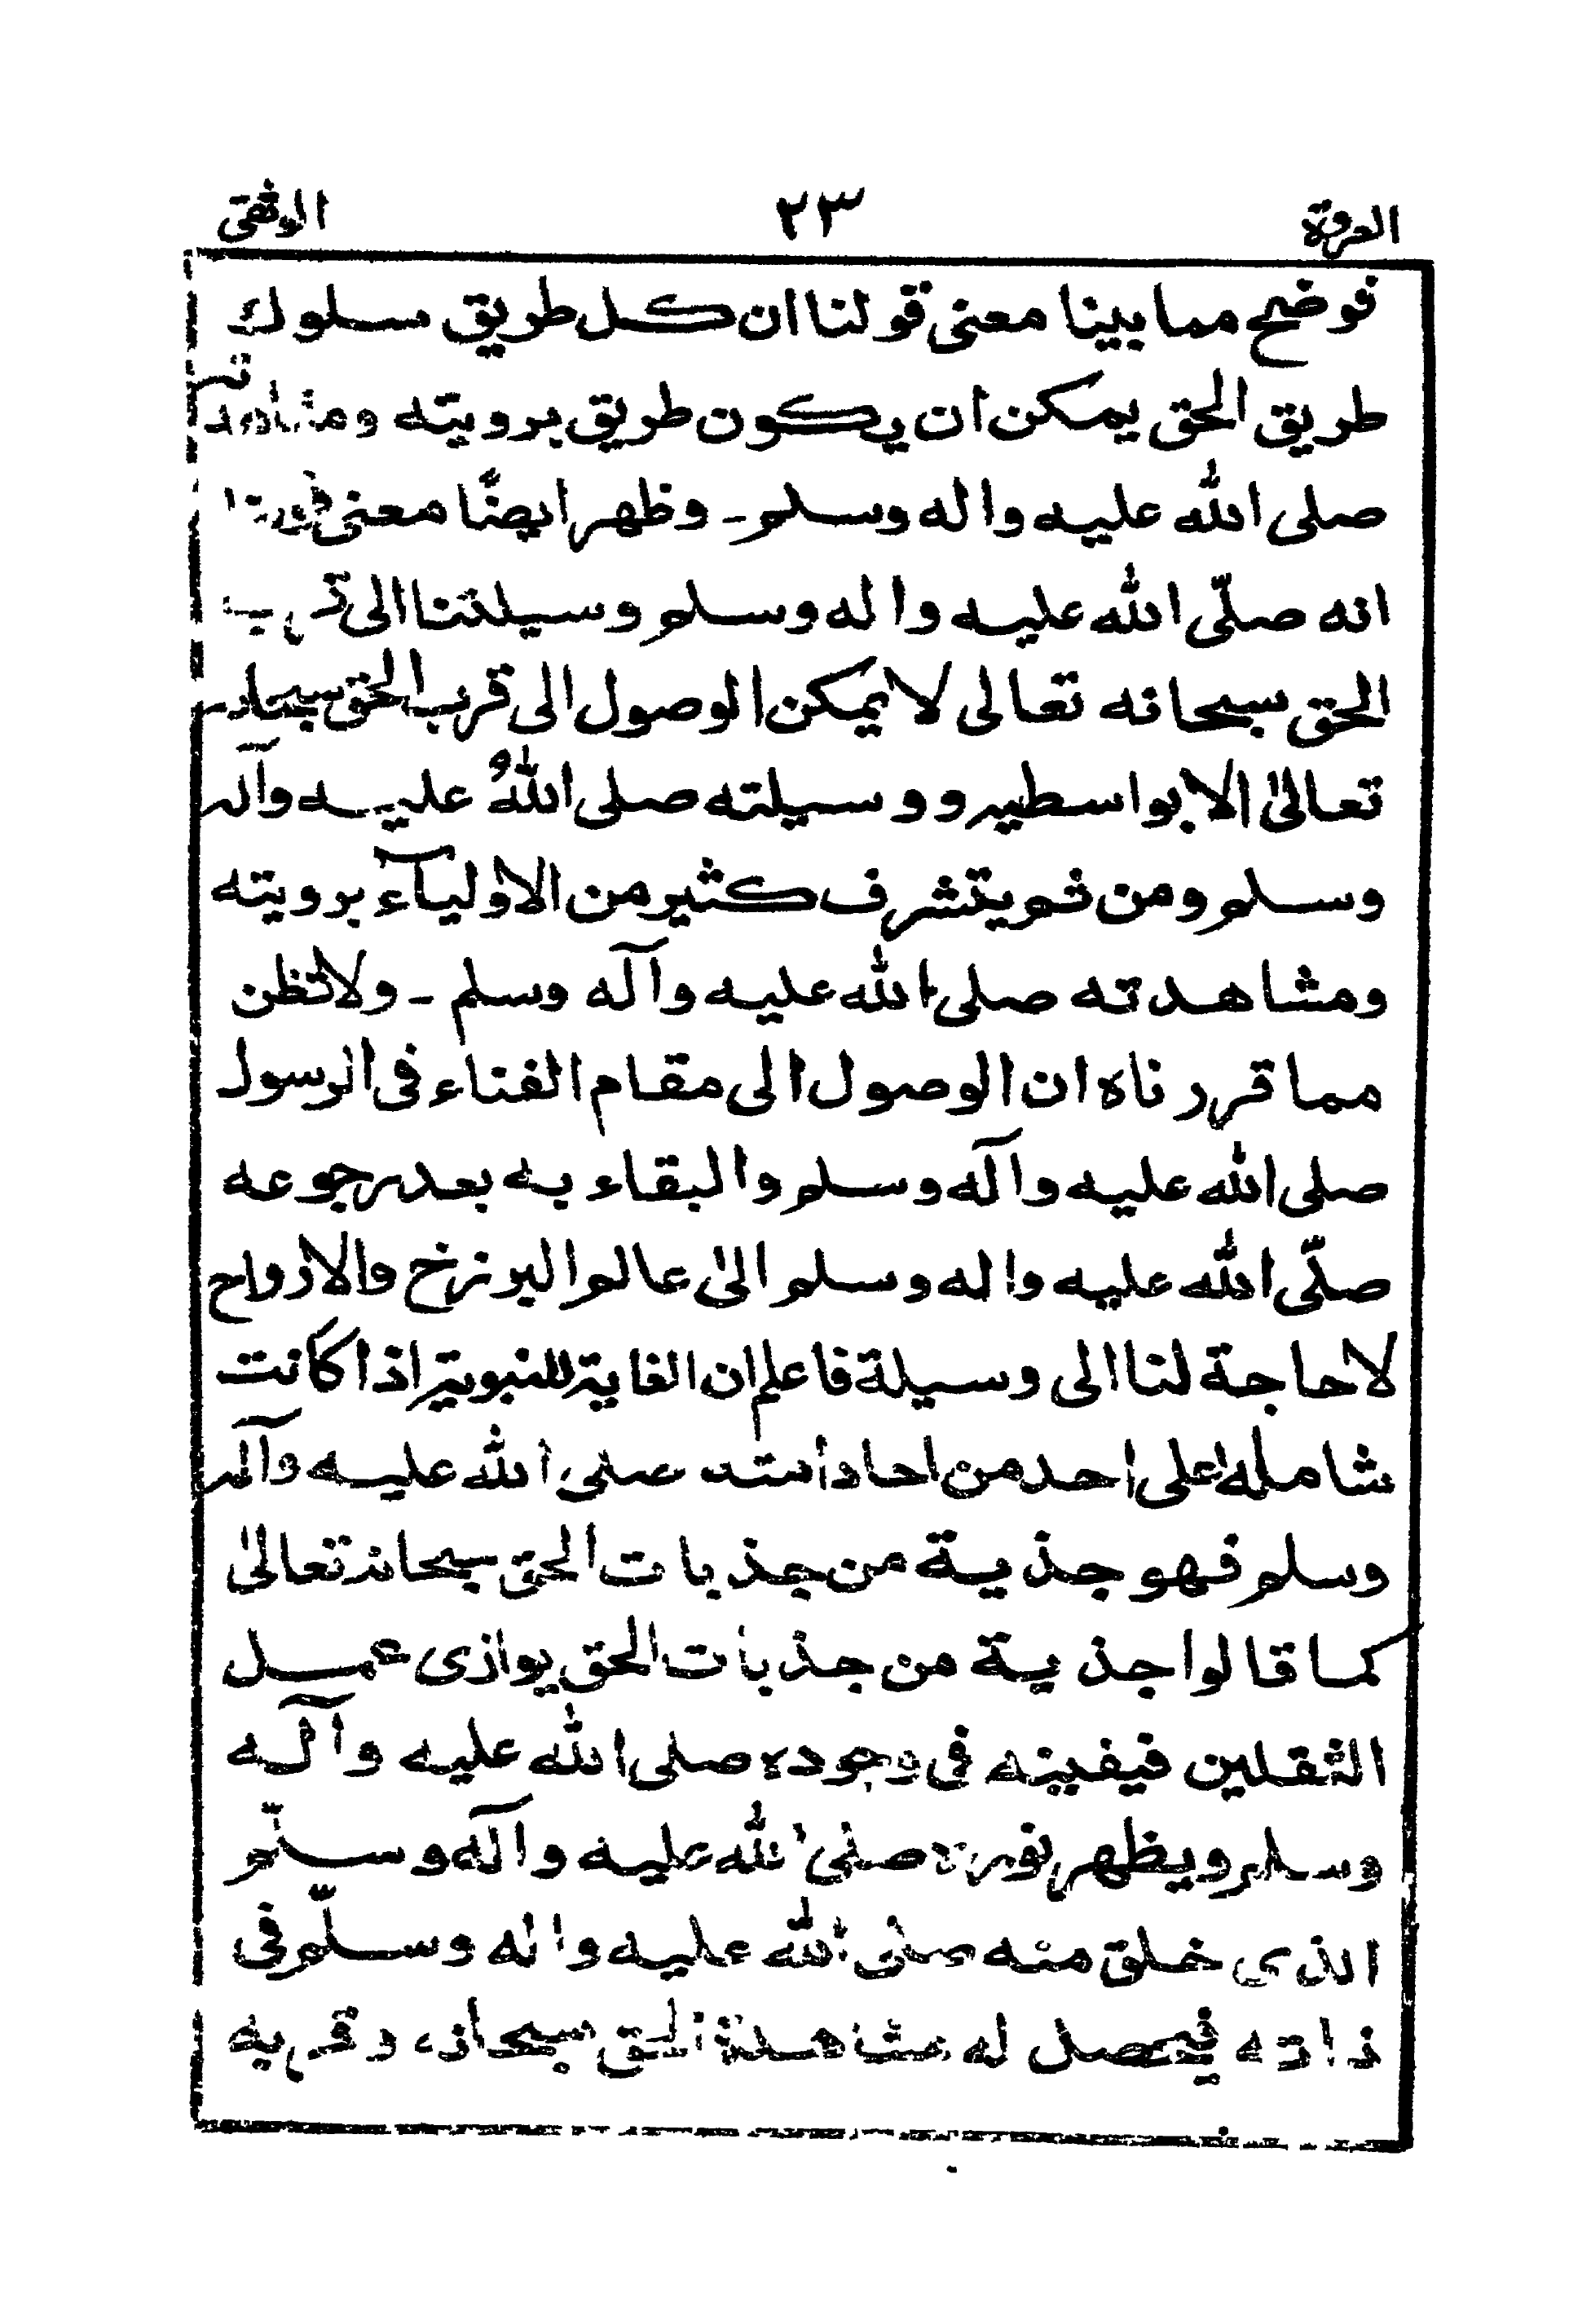 العروة ٢٣ الوثقى
فوضح مما بينا معنى قولنا ان كل طريق سلوك
طريق الحق يمكن ان يكون طريق برويته ومشاهدته
صلى الله عليه واله وسلم۔ وظهر ايضًا معنى قولنا
انه صلّى الله عليه واله وسلم وسيلتنا الى قرب
الحق سبحانه تعالى لا يمكن الوصول الى قرب الحق سبحانه
تعالىٰ الا بواسطيه ووسيلته صلى اللهُ عليه وآله
وسلم ومن ثم يتشرف كثير من الاولياء برويته
ومشاهدته صلى الله عليه وآله وسلم ۔ ولا تظن
مما قررناه ان الوصول الى مقام الفناء فى الرسول
صلى الله عليه وآله وسلم والبقاء به بعد رجوعه
صلّى الله عليه واله وسلم الىٰ عالم البرزخ والارواح
لا حاجة لنا الى وسيلة فاعلم ان الغاية للنبوية اذا كانت
شاملة على احد من احاد امته صلى الله عليه وآله
وسلم فهو جذبة من جذبات الحق سبحانه تعالىٰ
كما قالوا جذبة من جذبات الحق يوازى عمل
الثقلين فيفينه فى وجوده صلى الله عليه وآله
وسلم ويظهر نوره صلى الله عليه وآله وسلّم
الذى خلق منه صلى الله عليه واله وسلّم فى
ذاته فيحصل له مشاهدة الحق سبحانه وقربه